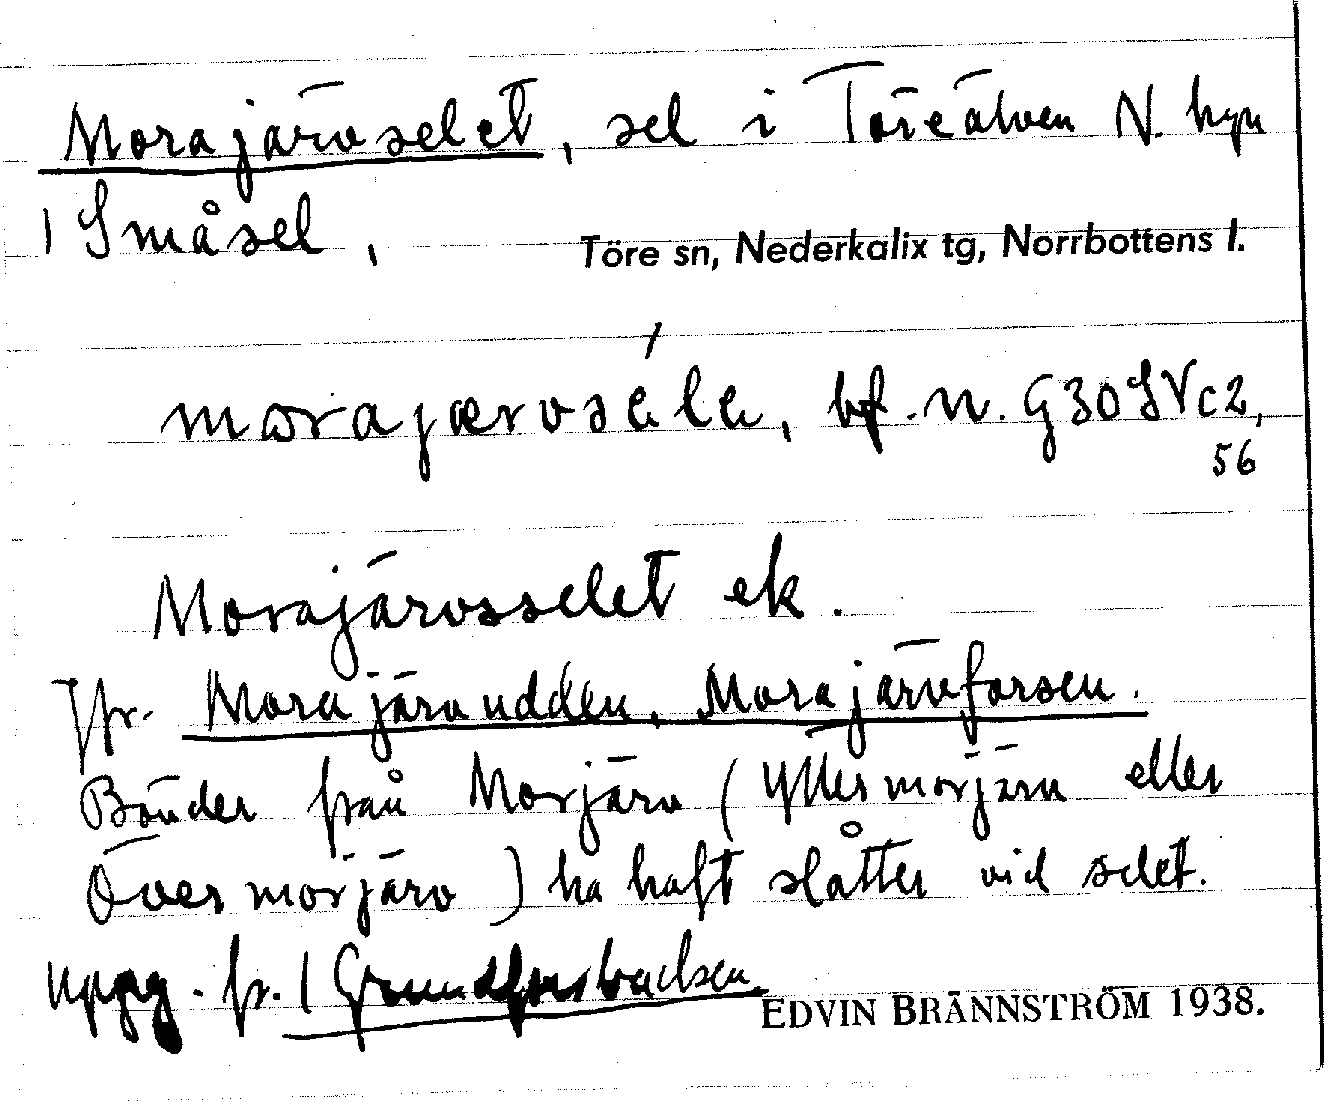 Morajärvselet, sel i Töreälven N. hgn
1 Småsel,
Töre sn, Nederkalix tg, Norrbottens l.
morajærvséle, bf. n. G30SVc2,
56
Morajärvsselet ek.
Jfr. Morajärvudden, Morajärvforsen.
Bönder från Morjärv (Yttermorjärv eller
Övermorjärv) ha haft slåtter vid selet.
uppg. fr. 1 Grundforsbacken.
EDVIN BRÄNNSTRÖM 1938.